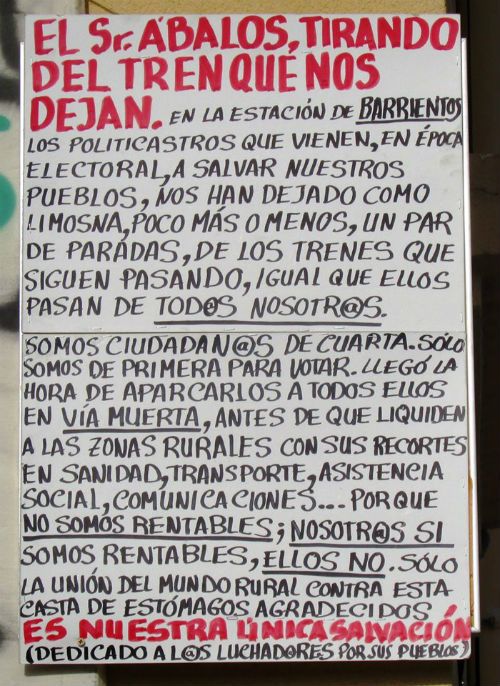 EL Sr. ÁBALOS, TIRANDO
DEL TREN QUE NOS
DEJAN. EN LA ESTACIÓN DE BARRIENTOS
LOS POLITICASTROS QUE VIENEN, EN ÉPOCA
ELECTORAL, A SALVAR NUESTROS
PUEBLOS, NOS HAN DEJADO COMO
LIMOSNA, POCO MÁS O MENOS, UN PAR
DE PARADAS, DE LOS TRENES QUE
SIGUEN PASANDO, IGUAL QUE ELLOS
PASAN DE TOD@S NOSOTR@S.
SOMOS CIUDADAN@S DE CUARTA. SÓLO
SOMOS DE PRIMERA PARA VOTAR. LLEGÓ LA
HORA DE APARCARLOS A TODOS ELLOS
EN VÍA MUERTA, ANTES DE QUE LIQUIDEN
A LAS ZONAS RURALES CON SUS RECORTES
EN SANIDAD, TRANSPORTE, ASISTENCIA
SOCIAL, COMUNICACIONES... PORQUE
NO SOMOS RENTABLES; NOSOTR@S SI
SOMOS RENTABLES, ELLOS NO. SÓLO
LA UNIÓN DEL MUNDO RURAL CONTRA ESTA
CASTA DE ESTÓMAGOS AGRADECIDOS
ES NUESTRA ÚNICA SALVACIÓN
(DEDICADO A L@S LUCHADORES POR SUS PUEBLOS)